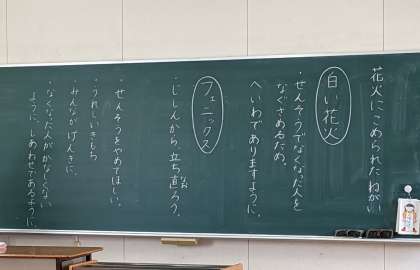 花火にこめられたねがい
白い花火
・せんそうでなくなった人を
なぐさめるため。
へいわでありますように。
フェニックス
・じしんから立ち直ろう。
なお
・せんそうをやめてほしい。
・うれしいきもち
・みんながげんきに。
・なくなった人がかなしくない
ように、しあわせであるように。